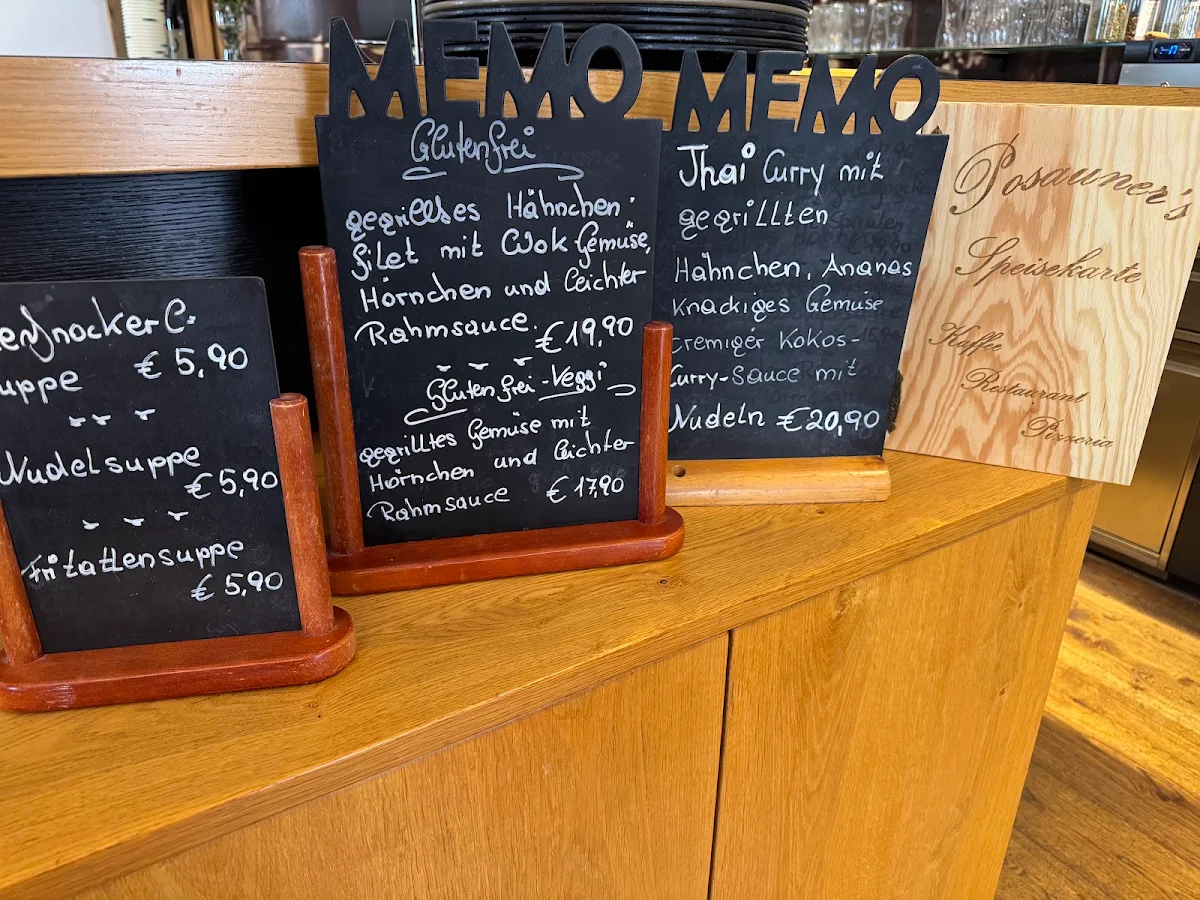 € 5,90
uppe
Nudelsuppe
€ 5,90
Fritattensuppe
€ 5,90
MEMO
Glutenfrei
gegrilltes Hähnchen-
filet mit Wok Gemüse,
Hörnchen und leichter
Rahmsauce.
€ 19,90
Glutenfrei-Veggi
gegrilltes Gemüse mit
Hörnchen und leichter
Rahmsauce € 17,90
MEMO
Thai Curry mit
gegrillten
Hähnchen, Ananas
Knackiges Gemüse
cremiger Kokos-
Curry-Sauce mit
Nudeln € 20,90
Posauner's
Speisekarte
Kaffee
Restaurant
Pizzeria